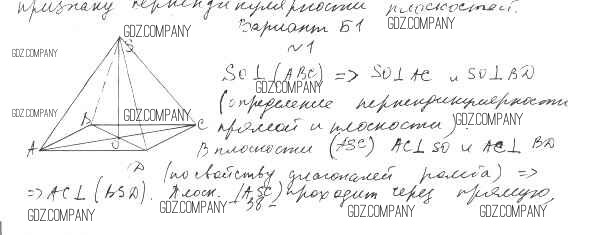 признаку перпендикулярности плоскостей.
GDZ.COMPANY
GDZ.COMPANY
Вариант Б1
GDZ.COMPANY
N1
S
SO⊥(ABC) => SO⊥AC и SO⊥BD
GDZ.COMPANY
(определение перпендикулярности
GDZ.COMPANY
GDZ.COMPANY
B
C
прямой и плоскости).
GDZ.COMPANY
A
O
В плоскости (ASC) AC⊥SO и AC⊥BD
D
(по свойству диагоналей ромба) =>
=> AC⊥(BSD). Плоск. (ASC) проходит через прямую,
38
GDZ.COMPANY
GDZ.COMPANY
GDZ.COMPANY
GDZ.COMPANY